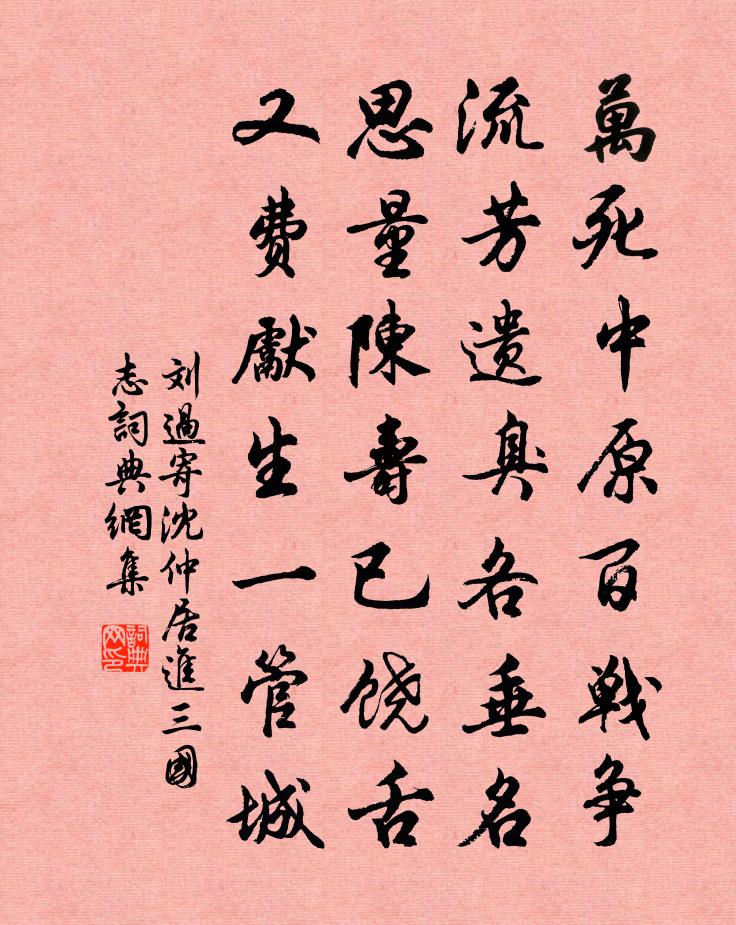 萬死中原百戰争
流芳遗臭各垂名
思量陳壽已饶舌
又費獻生一管城
刘過寄沈仲居進三國
志詞典網集
詞典网印